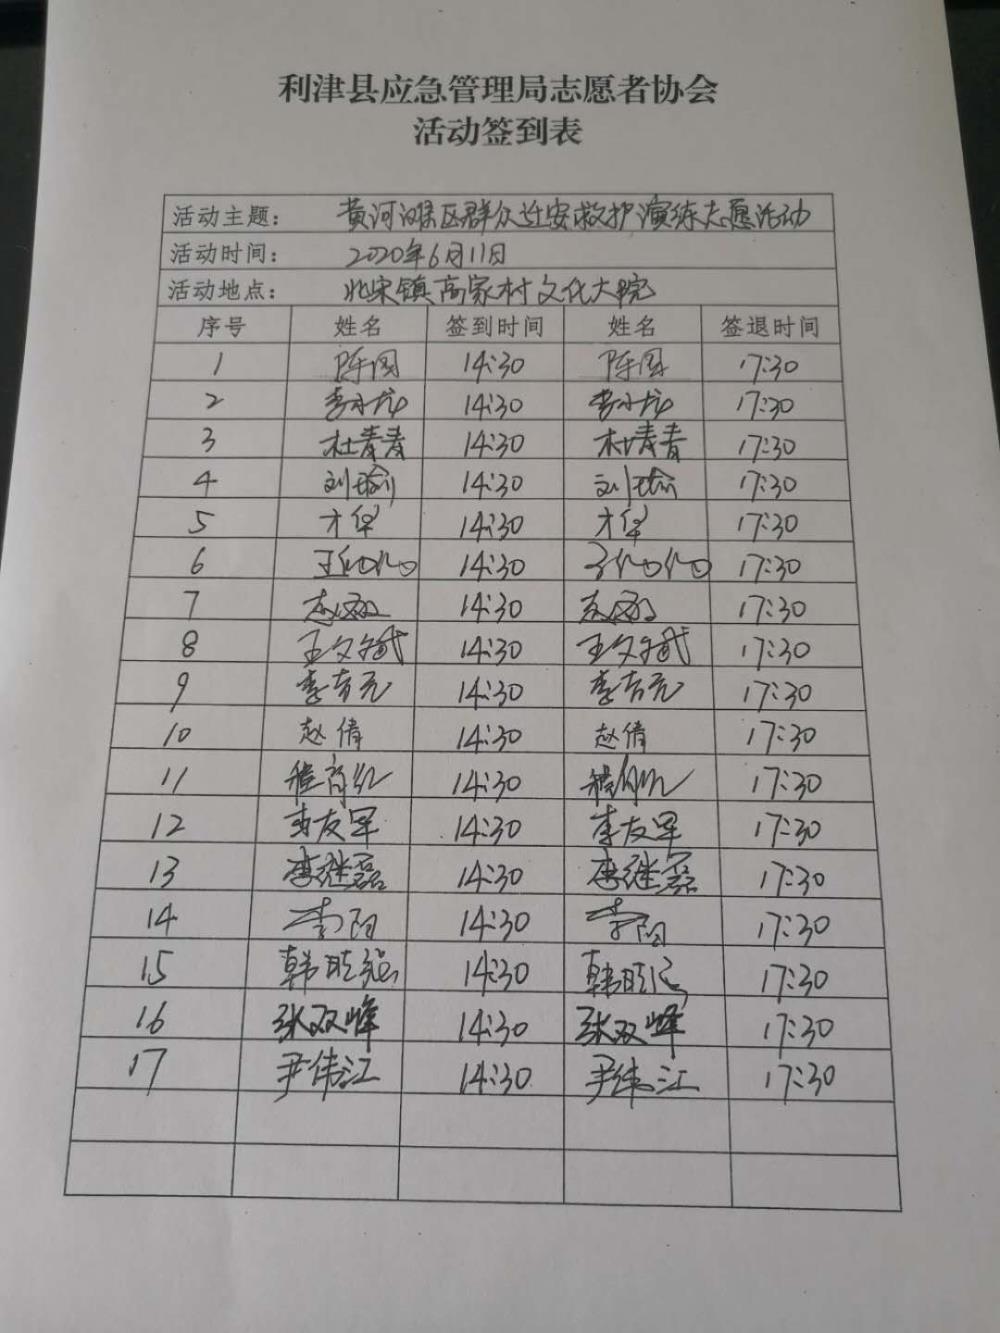 利津县应急管理局志愿者协会
活动签到表
活动主题： 黄河滩区群众迁安救护演练志愿活动
活动时间： 2020年6月11日
活动地点： 北宋镇高家村文化大院
序号 姓名 签到时间 姓名 签退时间
1 陈国 14:30 陈国 17:30
2 李小龙 14:30 李小龙 17:30
3 杜青青 14:30 杜青青 17:30
4 刘瑜 14:30 刘瑜 17:30
5 14:30 17:30
6 14:30 17:30
7 14:30 17:30
8 王文斌 14:30 王文斌 17:30
9 李吉元 14:30 李吉元 17:30
10 赵倩 14:30 赵倩 17:30
11 14:30 17:30
12 李友军 14:30 李友军 17:30
13 李继磊 14:30 李继磊 17:30
14 李阳 14:30 李阳 17:30
15 14:30 17:30
16 张双峰 14:30 张双峰 17:30
17 尹伟江 14:30 尹伟江 17:30